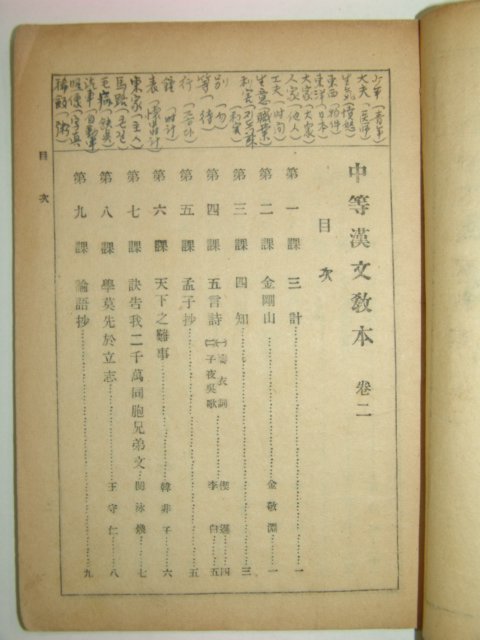 中等漢文敎本 卷二
目次
第一課 三計……一
第二課 金剛山……金敬淵……一
第三課 四知……三
第四課 五言詩
㈠ 寒衣詞 偰遜 四
㈡ 子夜吳歌 李白 五
第五課 孟子抄……五
第六課 天下之難事……韓非子……六
第七課 訣告我二千萬同胞兄弟文……閔泳煥……七
第八課 學莫先於立志……王守仁……八
第九課 論語抄……九
少年(靑年
大夫(
生気(
東西(物件
東洋(日本
大家(大家
人家(他人
工夫(时间
生意(職業
利害(
別(勿
等(待
行(
鐘(时計
表(懷中时計
東家(主人
馬路(
毛病(缺点
汽車(自動車
稀飯(粥
目次